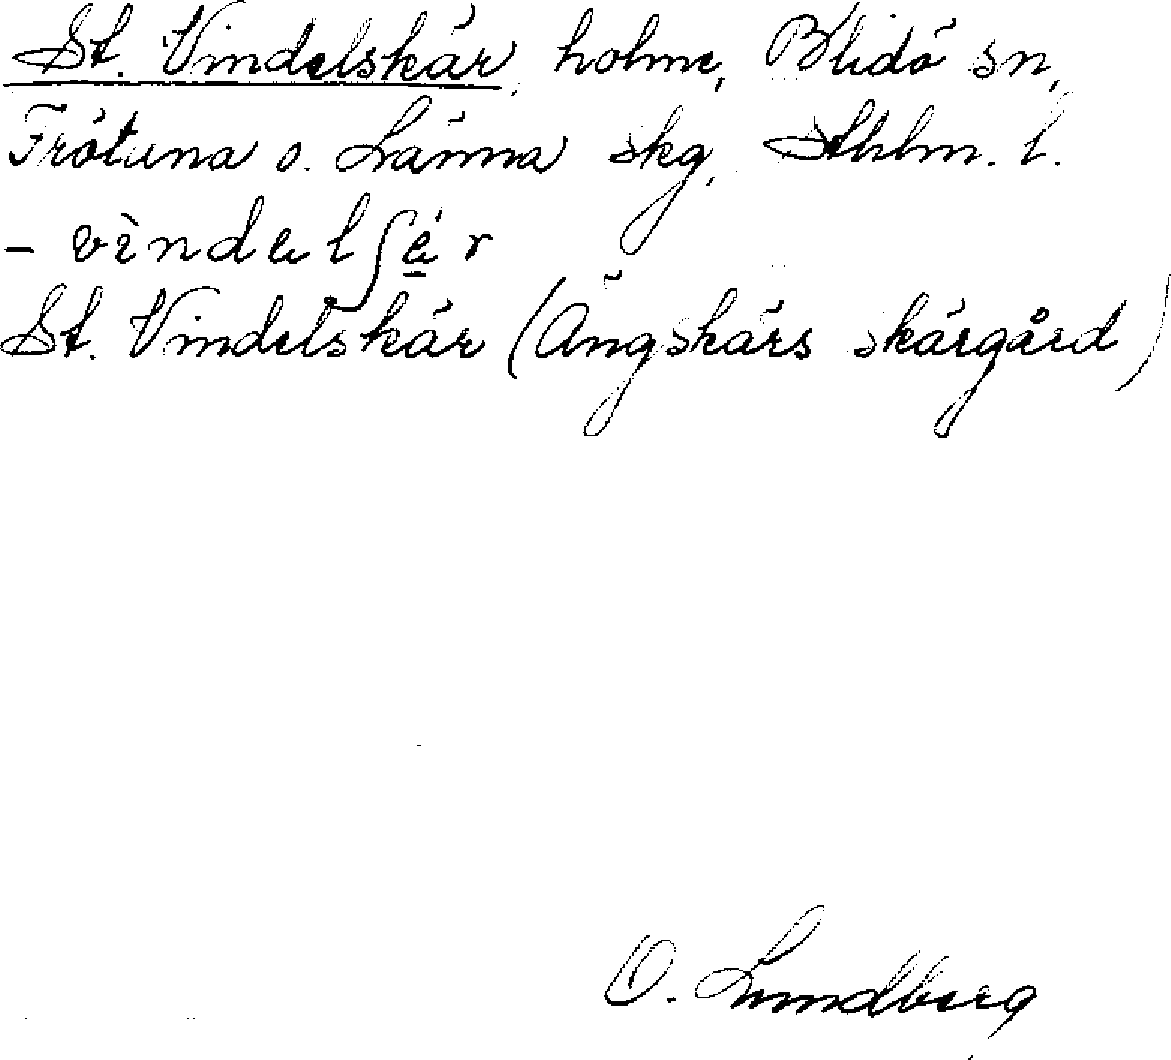 St. Vindelskär, holme, Blidö sn,
Frötuna o. Länna skg, Sthlm. l.
- vìndəlʃä́r
St. Vindelskär (Ängskärs skärgård)
O. Lundberg